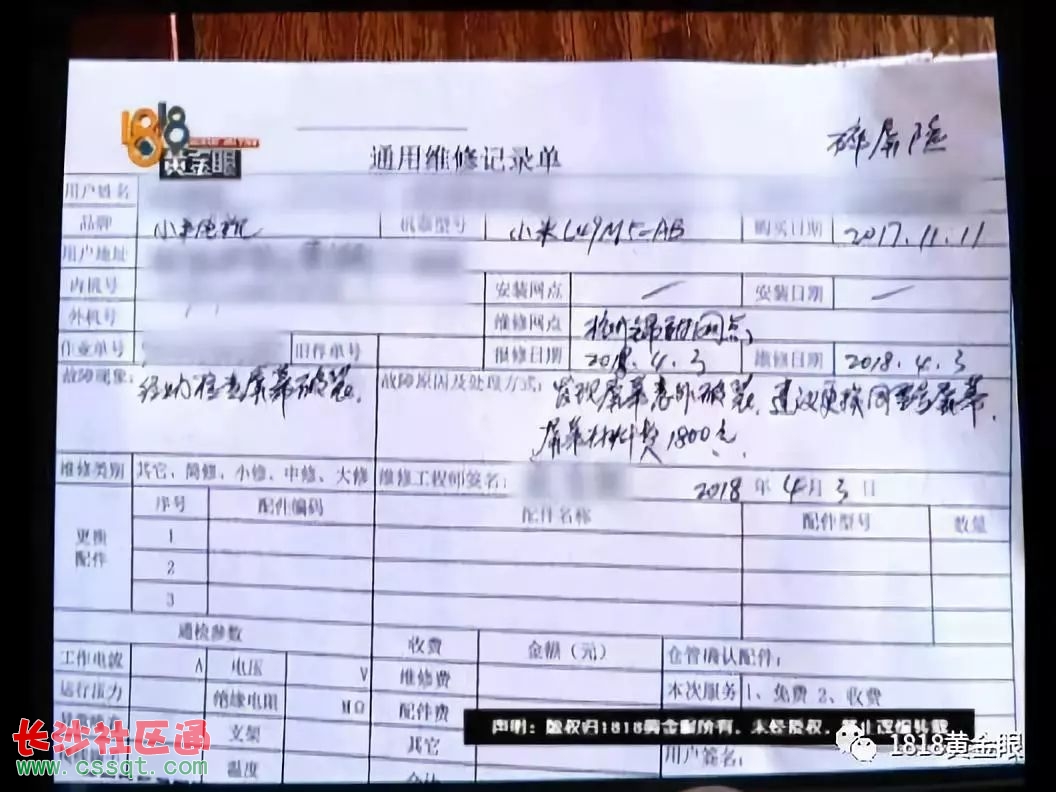 1818
黄金眼
碎屏险
通用维修记录单
用户姓名
品牌 小米电视 机器型号 小米L49M5-AB 购买日期 2017.11.11
用户地址
内机号 安装网点 安装日期
外机号 维修网点
作业单号 旧存单号 报修日期 2018.4.3 维修日期 2018.4.3
故障现象: 检查屏幕破裂. 故障原因及处理方式: 发现屏幕意外破裂, 建议更换同型号屏幕,
屏幕材料费1800元
维修类别 其它、简修、小修、中修、大修 维修工程师签名: 2018年4月3日
更换配件 序号 配件编码 配件名称 配件型号 数量
1
2
3
通检参数 收费 金额（元） 仓管确认配件:
工作电流 A 电压 V 维修费 本次服务 1、免费 2、收费
运行压力 绝缘电阻 MΩ 配件费
支架 其它 用户签名:
温度 合计
声明: 版权归1818黄金眼所有, 未经授权, 禁止改编转载
1818黄金眼
长沙社区通
www.cssqt.com